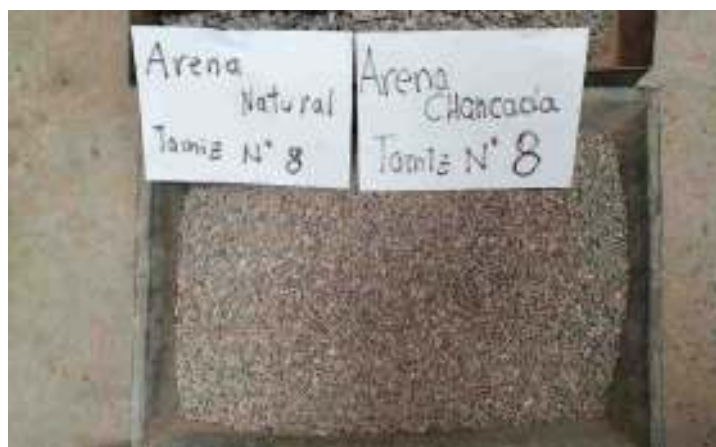 Arena
Natural
Tamiz N° 8
Arena
CHancada
Tamiz N° 8